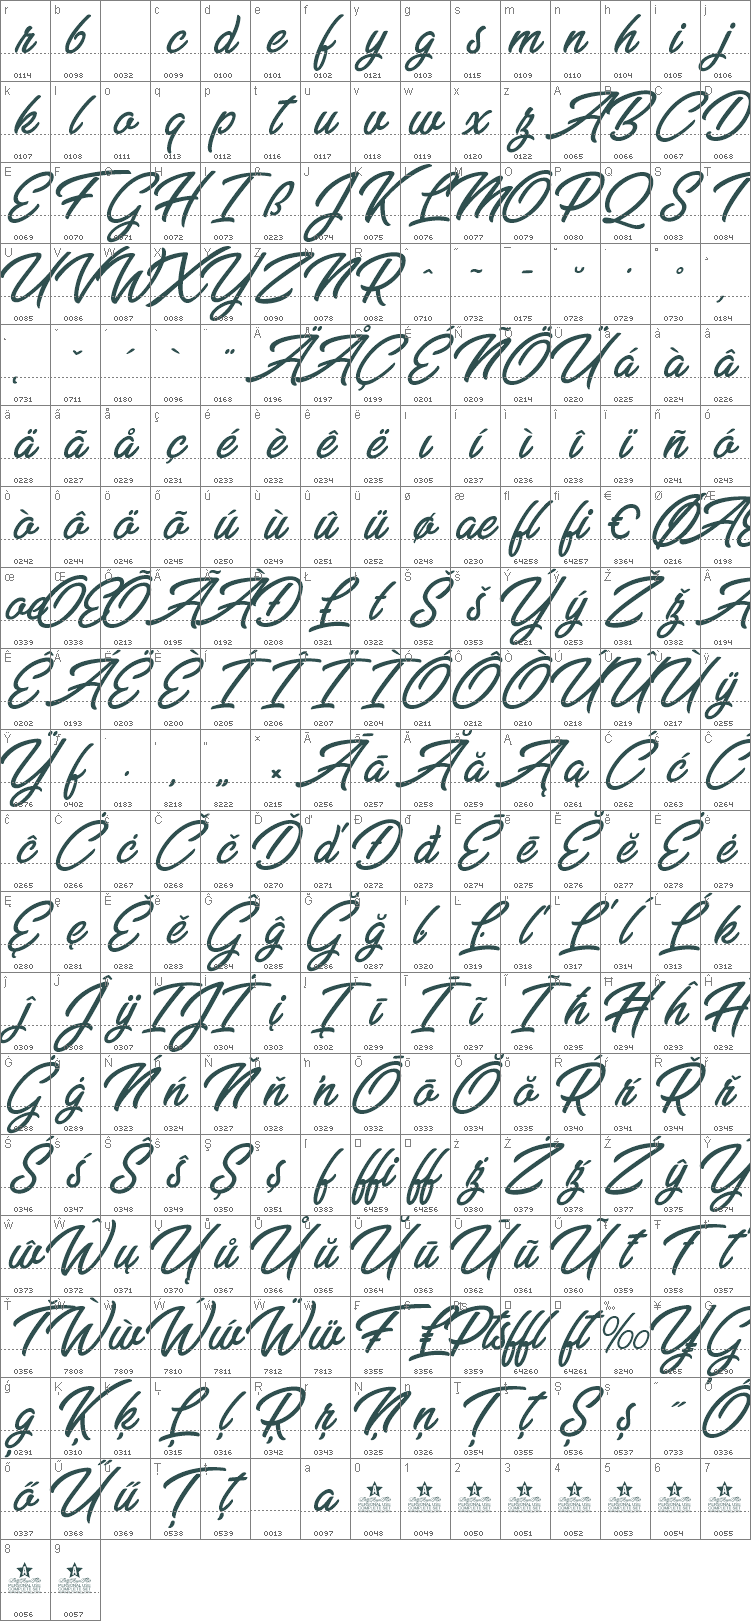 r b c d e f y g s m n h i j
0114 0098 0032 0099 0100 0101 0102 0121 0103 0115 0109 0110 0104 0105 0106
k l o q p t u v w x z A B C D
0107 0108 0111 0113 0112 0116 0117 0118 0119 0120 0122 0065 0066 0067 0068
E F G H I ß J K L M O P Q S T
0069 0070 0071 0072 0073 0223 0074 0075 0076 0077 0079 0080 0081 0083 0084
U V W X Y Z N R ˆ ˜ ¯ ˘ ˙ ˚ ¸
0085 0086 0087 0088 0089 0090 0078 0082 0710 0732 0175 0728 0729 0730 0184
˛ ˇ ´ ` ¨ Ä Å Ç É Ñ Ö Ü á à â
0731 0711 0180 0096 0168 0196 0197 0199 0201 0209 0214 0220 0225 0224 0226
ä ã å ç é è ê ë ı í ì î ï ñ ó
0228 0227 0229 0231 0233 0232 0234 0235 0305 0237 0236 0238 0239 0241 0243
ò ô ö õ ú ù û ü ø æ fl fi € Ø Æ
0242 0244 0246 0245 0250 0249 0251 0252 0248 0230 64258 64257 8364 0216 0198
œ Œ Õ Ã À Ð Ł ł Š š Ý ý Ž ž Â
0339 0338 0213 0195 0192 0208 0321 0322 0352 0353 0221 0253 0381 0382 0194
Ê Á Ë È Í Î Ì Ï Ó Ô Ò Ú Û Ù ÿ
0202 0193 0203 0200 0205 0206 0207 0211 0212 0210 0218 0219 0217 0255
Ÿ ƒ · ‚ „ × Ā ā Ă ă Ą ą Ć ć Ĉ
0376 0402 0183 8218 8222 0215 0256 0257 0258 0259 0260 0261 0262 0263 0264
ĉ Ċ ċ Č č Ď ď Đ đ Ē ē Ĕ ĕ Ė ė
0265 0266 0267 0268 0269 0270 0271 0272 0273 0274 0275 0276 0277 0278 0279
Ę ę Ě ě Ĝ ĝ Ğ ğ ŀ Ŀ ľ Ľ ĺ Ĺ ķ
0280 0281 0282 0283 0284 0285 0286 0287 0320 0319 0318 0317 0314 0313 0312
ĵ Ĵ ĳ Ĳ İ į Į ī Ī ĩ Ĩ ħ Ħ ĥ Ĥ
0309 0308 0307 0304 0303 0302 0299 0298 0297 0296 0295 0294 0293 0292
Ġ ġ Ń ń Ň ň ŉ Ō ō Ŏ ŏ Ŕ ŕ Ř ř
0288 0289 0323 0324 0327 0328 0329 0332 0333 0334 0335 0340 0341 0344 0345
Ś ś Ŝ ŝ Ş ş ſ ffi ff ż Ż ź Ź ŷ Ŷ
0346 0347 0348 0349 0350 0351 0383 64259 64256 0380 0379 0378 0377 0375 0374
ŵ Ŵ ų Ų ů Ů ŭ Ŭ ū Ū ũ Ũ ŧ Ŧ ť
0373 0372 0371 0370 0367 0366 0365 0364 0363 0362 0361 0360 0359 0358 0357
Ť Ẁ ẁ Ẃ ẃ Ẅ ẅ ₣ ₤ Pts ffl ſt ‰ ¥ Ģ
0356 7808 7809 7810 7811 7812 7813 8355 8356 8359 64260 64261 8240 0165 0290
ģ Ķ ķ Ļ ļ Ŗ ŗ Ņ ņ Ţ ţ Ș ș ˝ Ő
0291 0310 0311 0315 0316 0342 0343 0325 0326 0354 0355 0536 0537 0733 0336
ő Ű ű Ț ț a 0 1 2 3 4 5 6 7
0337 0368 0369 0538 0539 0013 0097 0048 0049 0050 0051 0052 0053 0054 0055
8 9
PERSONAL USE
COMPLETE SET
0056 0057